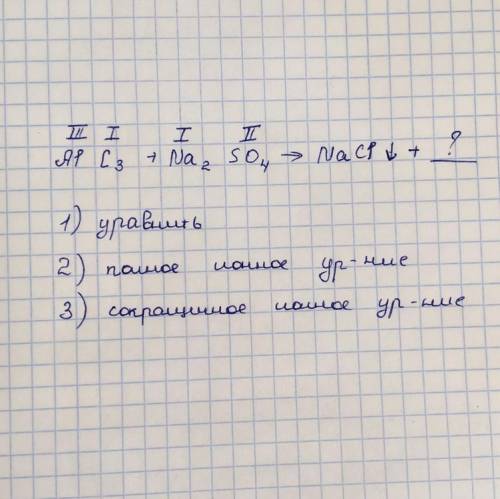 III I I II ?
Al C₃ + Na₂ SO₄ → NaCl ↓ + ___
1) уравнить
2) полное ионное ур-ние
3) сокращинное ионное ур-ние